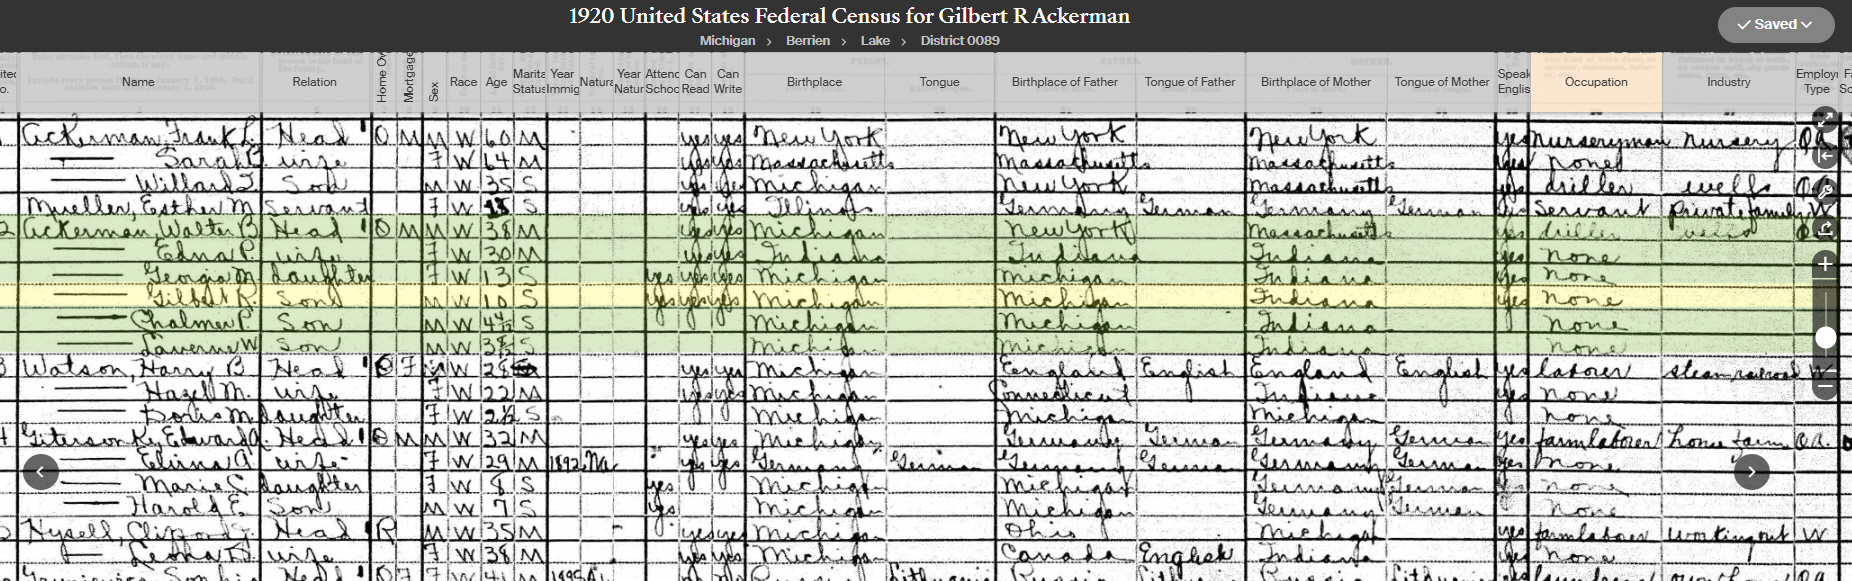 1920 United States Federal Census for Gilbert R Ackerman
Saved
Michigan > Berrien > Lake > District 0089
Name Relation Home Ow Mortgage Sex Race Age Marita Status Year Immig Natura Year Natur Attend Schoo Can Read Can Write Birthplace Tongue Birthplace of Father Tongue of Father Birthplace of Mother Tongue of Mother Speak Englis Occupation Industry Employ Type
Ackerman, Frank L. Head O M M W 60 M yes yes New York New York New York yes nurseryman nursery
Sarah wife F W 64 M yes yes Massachusetts Massachusetts Massachusetts yes none
Willard Son M W 35 S yes yes Michigan New York Massachusetts yes driller wells
Mueller, Esther M Servant F W 18 S yes yes Illinois Germany German Germany German yes servant private family W
2 Ackerman, Walter B Head O M M W 38 M yes yes Michigan New York Massachusetts yes driller wells
Edna P. wife F W 30 M yes yes Indiana Indiana Indiana yes none
Georgia M daughter F W 13 S yes yes yes Michigan Michigan Indiana yes none
Gilbert R. Son M W 10 S yes yes yes Michigan Michigan Indiana yes none
Chalmer P. Son M W S Michigan Michigan Indiana none
Lavern W Son M W S Michigan Michigan Indiana none
3 Watson, Harry B Head O F M W 28 yes yes Michigan England English England English yes laborer steam railroad W
Hazell M. wife F W 22 M yes yes Michigan Connecticut Indiana yes none
Doris M daughter F W S Michigan Michigan Michigan none
4 Edward A. Head O M M W 32 M yes yes Michigan Germany German Germany German yes farm laborer home farm O.A.
wife F W 29 M 1892 Na yes yes Germany German Germany German Germany German yes none
Marie C daughter F W 8 S yes Michigan Michigan Germany German none
Harold E. Son M W 7 S yes Michigan Michigan Germany German none
Hysell, Clifford Head R M W 35 M yes yes Michigan Ohio Michigan yes farm laborer working out W
Leona wife F W 38 M yes yes Michigan Canada English Indiana yes none
Head